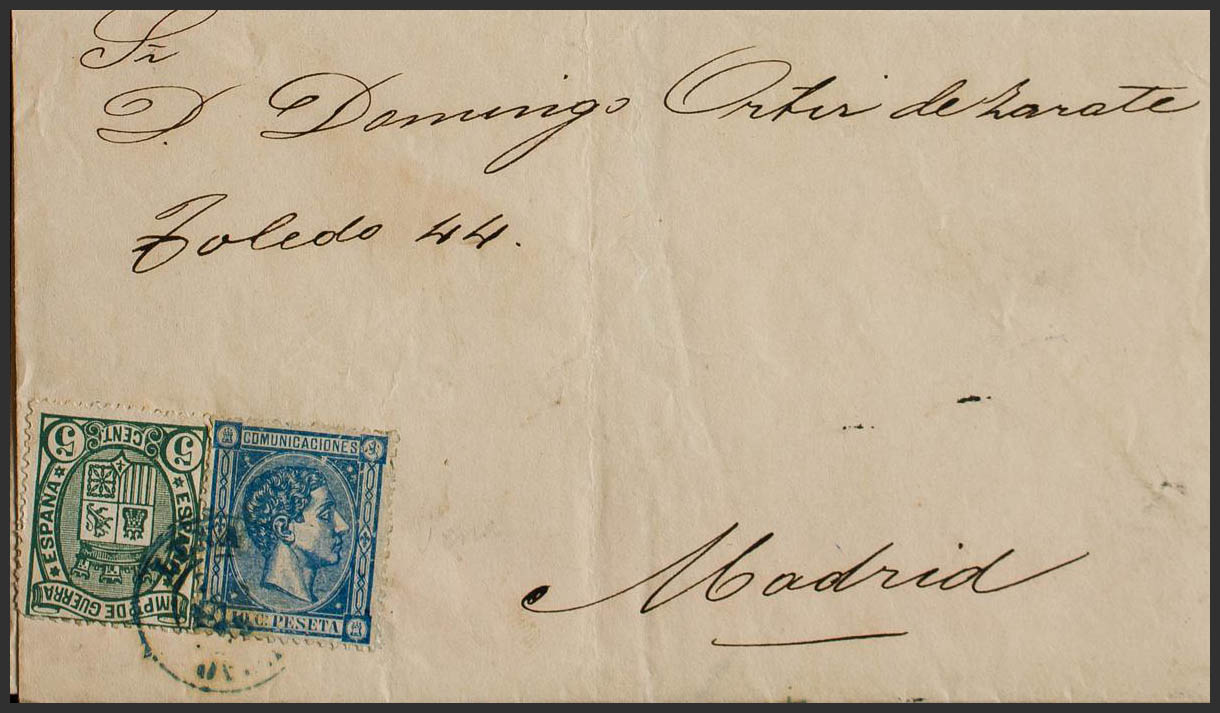 Sr
D. Domingo Ortiz de Zarate
Toledo 44.
Madrid
5 CENTs 5
ESPAÑA
ESPAÑA
IMPTO DE GUERRA
COMUNICACIONES
10 C. PESETA